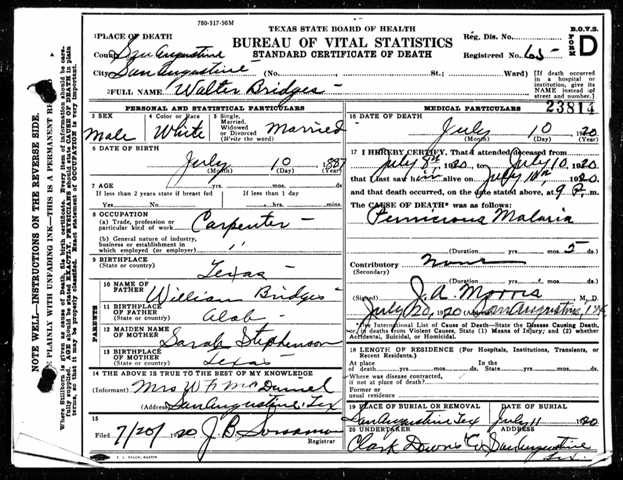 760-317-56M
TEXAS STATE BOARD OF HEALTH
BUREAU OF VITAL STATISTICS
STANDARD CERTIFICATE OF DEATH
Reg. Dis. No.
Registered No. 65 -
B.O.V.S.
FORM D
1 PLACE OF DEATH
County San Augustine
City San Augustine (No. St.; Ward)
[If death occurred in a hospital or institution, give its NAME instead of street and number.]
2 FULL NAME Walter Bridges
23814
PERSONAL AND STATISTICAL PARTICULARS
3 SEX Male
4 Color or Race White
5 Single, Married, Widowed or Divorced (Write the word) Married
6 DATE OF BIRTH
July 10 1887
(Month) (Day) (Year)
7 AGE
If less than 2 years state if breast fed If less than 1 day
yrs. mos. ds. hrs. mins.
8 OCCUPATION
(a) Trade, profession or particular kind of work Carpenter
(b) General nature of industry, business or establishment in which employed (or employer) "
9 BIRTHPLACE
(State or country) Texas
PARENTS
10 NAME OF FATHER William Bridges
11 BIRTHPLACE OF FATHER (State or country) Alab
12 MAIDEN NAME OF MOTHER Sarah Stephenson
13 BIRTHPLACE OF MOTHER (State or country) Texas
14 THE ABOVE IS TRUE TO THE BEST OF MY KNOWLEDGE
(Informant) Mrs W F McDaniel
(Address) San Augustine, Tex
15
Filed 7/20/1920 J. B.
Registrar
MEDICAL PARTICULARS
16 DATE OF DEATH
July 10 1920
(Month) (Day) (Year)
17 I HEREBY CERTIFY, That I attended deceased from
July 8th 1920 to July 10, 1920
that I last saw him alive on July 10th, 1920
and that death occurred, on the date stated above, at 9 P. m.
The CAUSE OF DEATH* was as follows:
Pernicious Malaria
(Duration) yrs. mos. 5 ds.
Contributory None
(Secondary)
(Duration) yrs. mos. ds.
(Signed) J. A. Morris M. D.
July 20, 1920 (Address) San Augustine, Tex
*Use International List of Causes of Death—State the Disease Causing Death, or, in deaths from Violent Causes, State (1) Means of Injury; and (2) whether Accidental, Suicidal, or Homicidal.
18 LENGTH OF RESIDENCE (For Hospitals, Institutions, Transients, or Recent Residents.)
At place of death yrs. mos. ds. In the State yrs. mos. ds.
Where was disease contracted, if not at place of death?
Former or usual residence
19 PLACE OF BURIAL OR REMOVAL DATE OF BURIAL
San Augustine Tex July 11 1920
20 UNDERTAKER ADDRESS
Clark Downs Co San Augustine
Tex.
NOTE WELL—INSTRUCTIONS ON THE REVERSE SIDE.
PLAINLY WITH UNFADING INK—THIS IS A PERMANENT